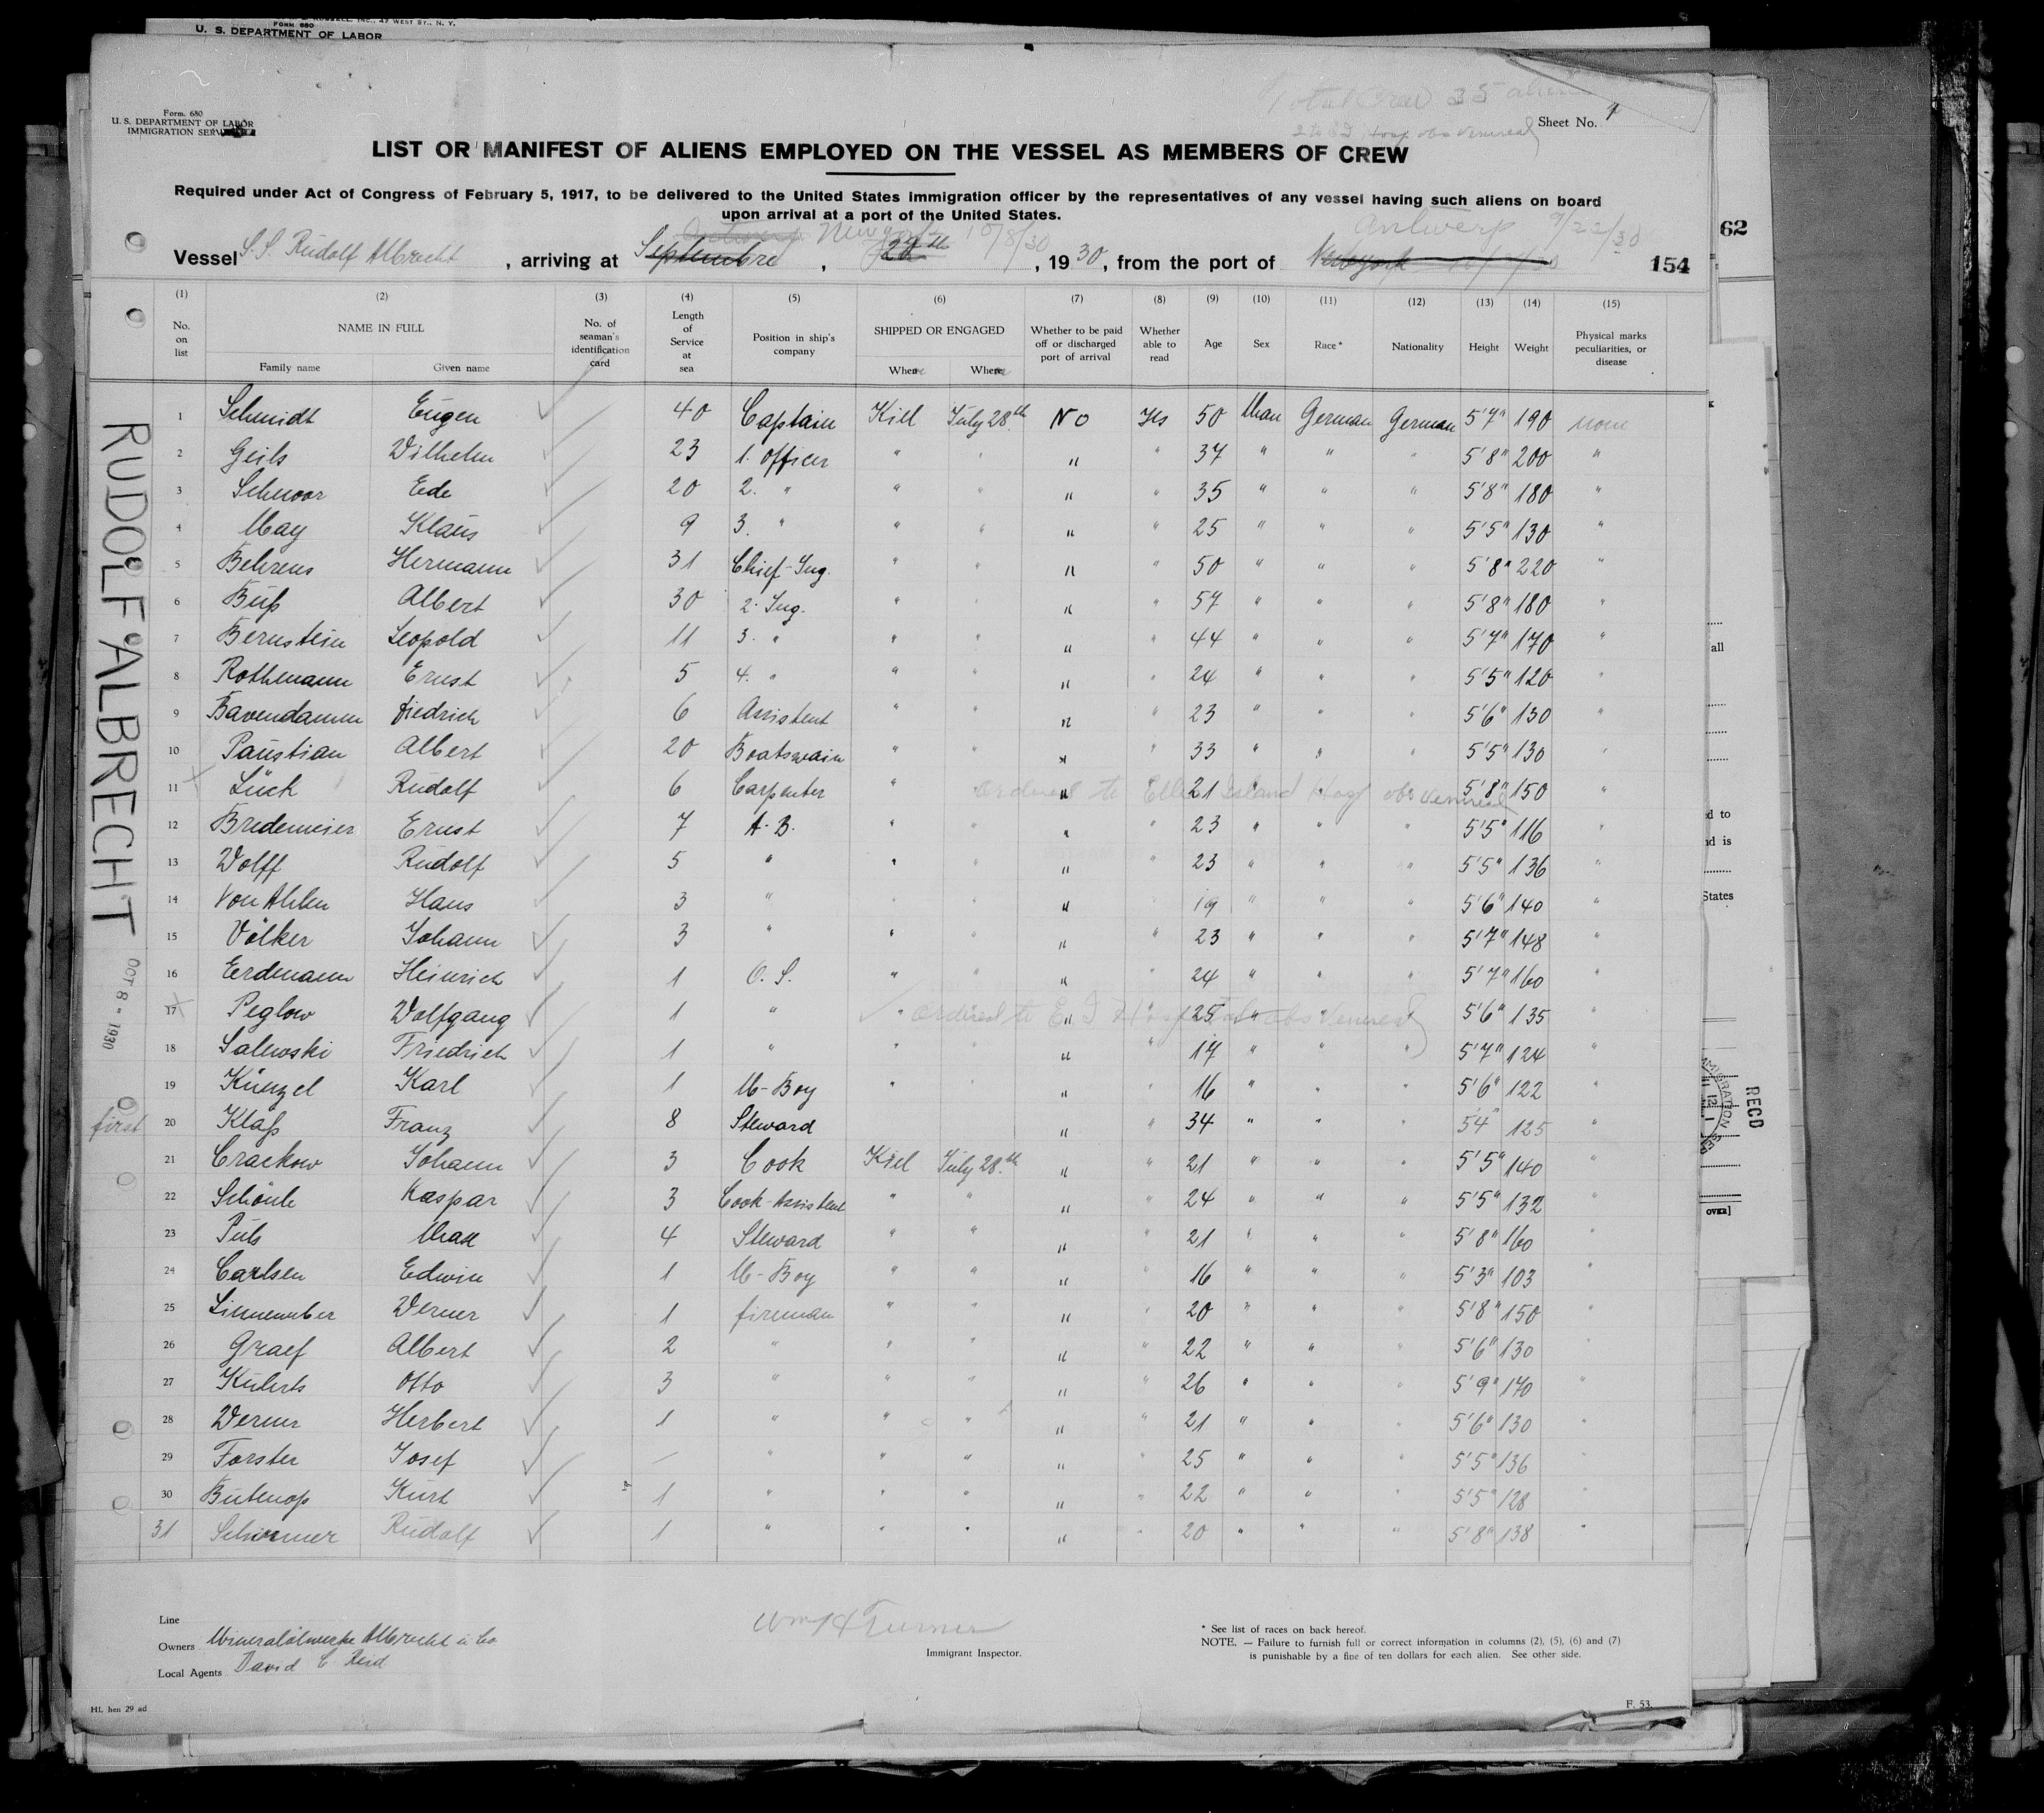 FORM 680
U. S. DEPARTMENT OF LABOR
Total Crew 35 aliens
Form. 680
U. S. DEPARTMENT OF LABOR
IMMIGRATION SERVICE
Sheet No. 1
2 to E I Hosp. obs venereal
LIST OR MANIFEST OF ALIENS EMPLOYED ON THE VESSEL AS MEMBERS OF CREW
Required under Act of Congress of February 5, 1917, to be delivered to the United States immigration officer by the representatives of any vessel having such aliens on board
upon arrival at a port of the United States.
Antwerp New York 10/8/30 Antwerp 9/22/30
Vessel S.S. Rudolf Albrecht, arriving at Septembre, 22th, 1930, from the port of Newyork 154
62
(1) (2) (3) (4) (5) (6) (7) (8) (9) (10) (11) (12) (13) (14) (15)
No. on list NAME IN FULL Family name Given name No. of seaman's identification card Length of Service at sea Position in ship's company SHIPPED OR ENGAGED When Where Whether to be paid off or discharged port of arrival Whether able to read Age Sex Race* Nationality Height Weight Physical marks peculiarities, or disease
1 Schmidt Eugen 40 Captain Kiel July 28th No Yes 50 Man German German 5'7" 190 none
2 Geils Wilhelm 23 1. Officer " " " " 37 " " " 5'8" 200 "
3 Schnoor Ede 20 2. " " " " " 35 " " " 5'8" 180 "
4 May Klaus 9 3. " " " " " 25 " " " 5'5" 130 "
5 Behrens Hermann 31 Chief-Ing. " " " " 50 " " " 5'8" 220 "
6 Buß Albert 30 2. Ing. " " " " 57 " " " 5'8" 180 "
7 Bernstein Leopold 11 3. " " " " " 44 " " " 5'7" 170 "
8 Rothmann Ernst 5 4. " " " " " 24 " " " 5'5" 120 "
9 Bavendamm Diedrich 6 Assistent " " " " 23 " " " 5'6" 130 "
10 Paustian Albert 20 Boatswain " " " " 33 " " " 5'5" 130 "
11 Lück Rudolf 6 Carpenter " " " " 21 " " " 5'8" 150 "
ordered to Ellis Island Hosp obs venereal
12 Bredemeier Ernst 7 A. B. " " " " 23 " " " 5'5" 116 "
13 Wolff Rudolf 5 " " " " " 23 " " " 5'5" 136 "
14 Von Ahlen Hans 3 " " " " " 19 " " " 5'6" 140 "
15 Völker Johann 3 " " " " " 23 " " " 5'7" 148 "
16 Eerdmann Heinrich 1 O. S. " " " " 24 " " " 5'7" 160 "
17 Peglow Wolfgang 1 " " " " " 25 " " " 5'6" 135 "
ordered to E I Hospital obs Venereal
18 Salewski Friedrich 1 " " " " " 17 " " " 5'7" 124 "
19 Künzel Karl 1 M-Boy " " " " 16 " " " 5'6" 122 "
first 20 Klaß Franz 8 Steward " " 34 " " " 5'4" 125 "
21 Crackow Johann 3 Cook Kiel July 28.th " " 21 " " " 5'5" 140 "
22 Schönle Kaspar 3 Cook-Assistent " " " " 24 " " " 5'5" 132 "
23 Puls Max 4 Steward " " " " 21 " " " 5'8" 160 "
24 Carlsen Edwin 1 M-Boy " " " " 16 " " " 5'3" 103 "
25 Linneweber Werner 1 fireman " " " " 20 " " " 5'8" 150 "
26 Graef Albert 2 " " " " " 22 " " " 5'6" 130 "
27 Otto 3 " " " " " 26 " " " 5'9" 170 "
28 Werner Herbert 1 " " " " " 21 " " " 5'6" 130 "
29 Forster Josef — " " " " " 25 " " " 5'5" 136 "
30 Butenop Kurt 1 " " " " " 22 " " " 5'5" 128 "
31 Schirmer Rudolf 1 " " " " " 20 " " " 5'8" 138 "
RUDOLF ALBRECHT
OCT 8 - 1930
Line
Owners Mineralölwerke Albrecht u Co
Local Agents David C Reid
Wm H Turner
Immigrant Inspector.
* See list of races on back hereof.
NOTE. — Failure to furnish full or correct information in columns (2), (5), (6) and (7)
is punishable by a fine of ten dollars for each alien. See other side.
HL hen 29 ad
F. 53.
all
States
RECD
OVER]